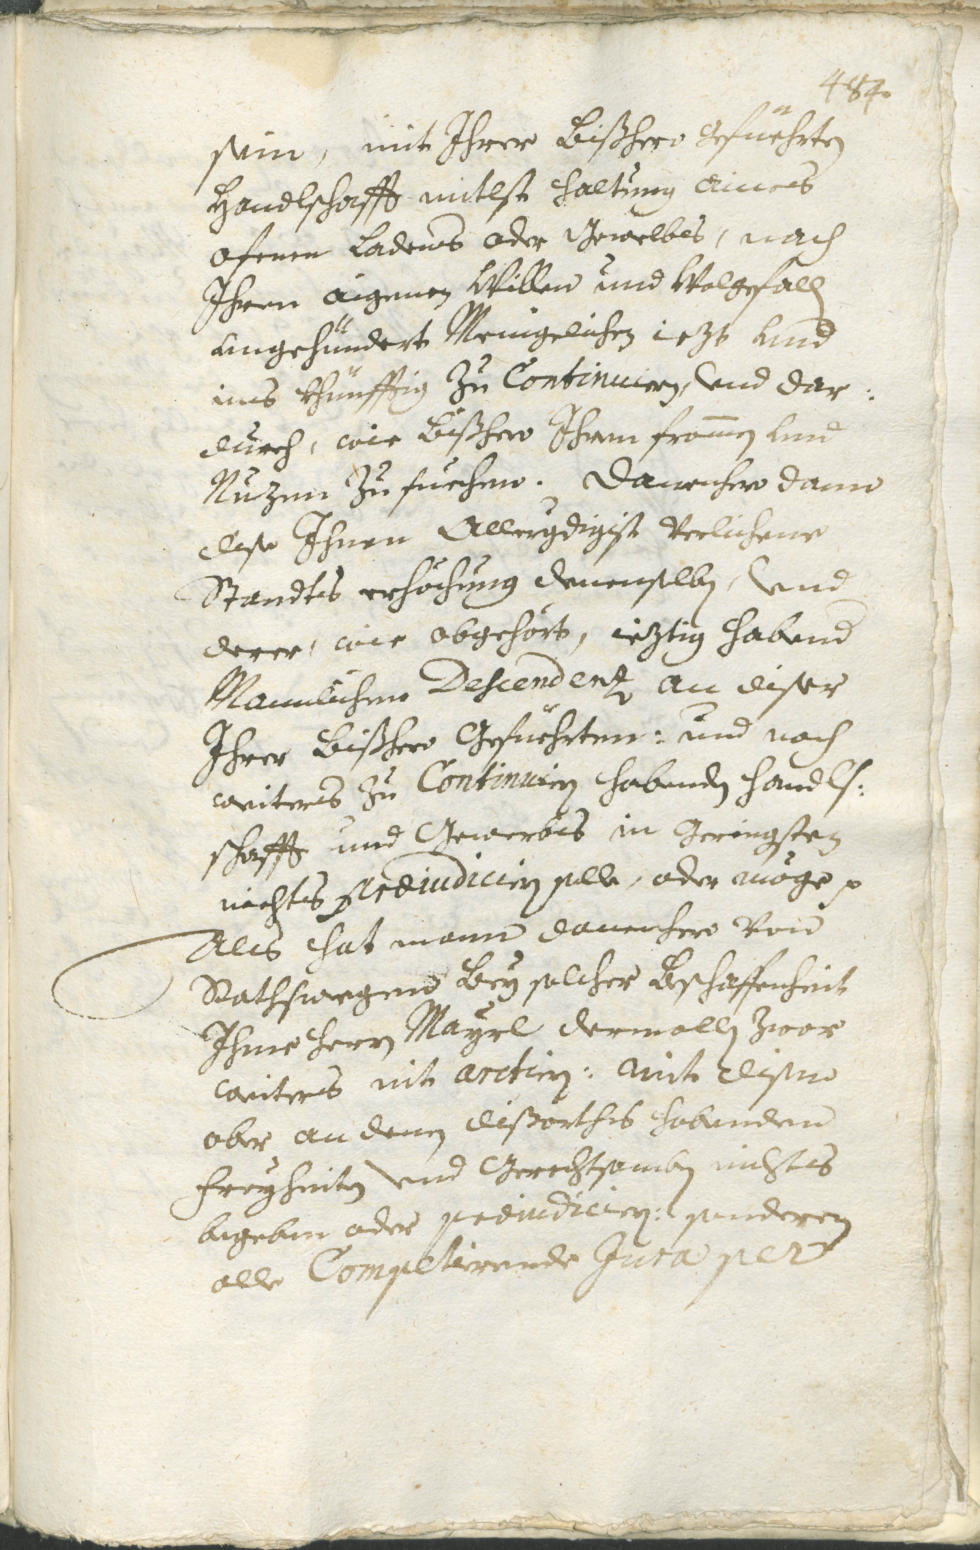 484.
sein, mit Ihrer bißhero gefüehrten
Handlschafft mitlst haltung aines
ofenen Ladens oder Gewelbes, nach
Ihren aigenen Willen und Wolgefallen
ungehündert Meingelichen iezt und
ins khünfftig zu Continuiern, und dar:
durch, wie bißhero Ihren frommen und
Nuzen zu suechen. Danenhero dann
dise Ihnen Allergdigist verlichene
Standts erhöchung denenselben, und
derer, wie obgehört, ieztig habend
Mannlichen Descendenz an diser
Ihrer bißhero Gefüehrten: und noch
weiters zu Continuiern habenden Handls:
schafft und Gewerbes in Geringsten
nichts præiudiciern solle, oder möge
Als hat mann danenhero von
Rathswegen bey solcher Beschaffenheit
Ihme Herrn Mayrl dermallen zwar
weiters nit arctiern: mit disem
aber an denen dißorths habenden
Freyheiten und Gerechtsamben nichts
begeben oder præiudiciern: sonderen
alle Competierende Jura per